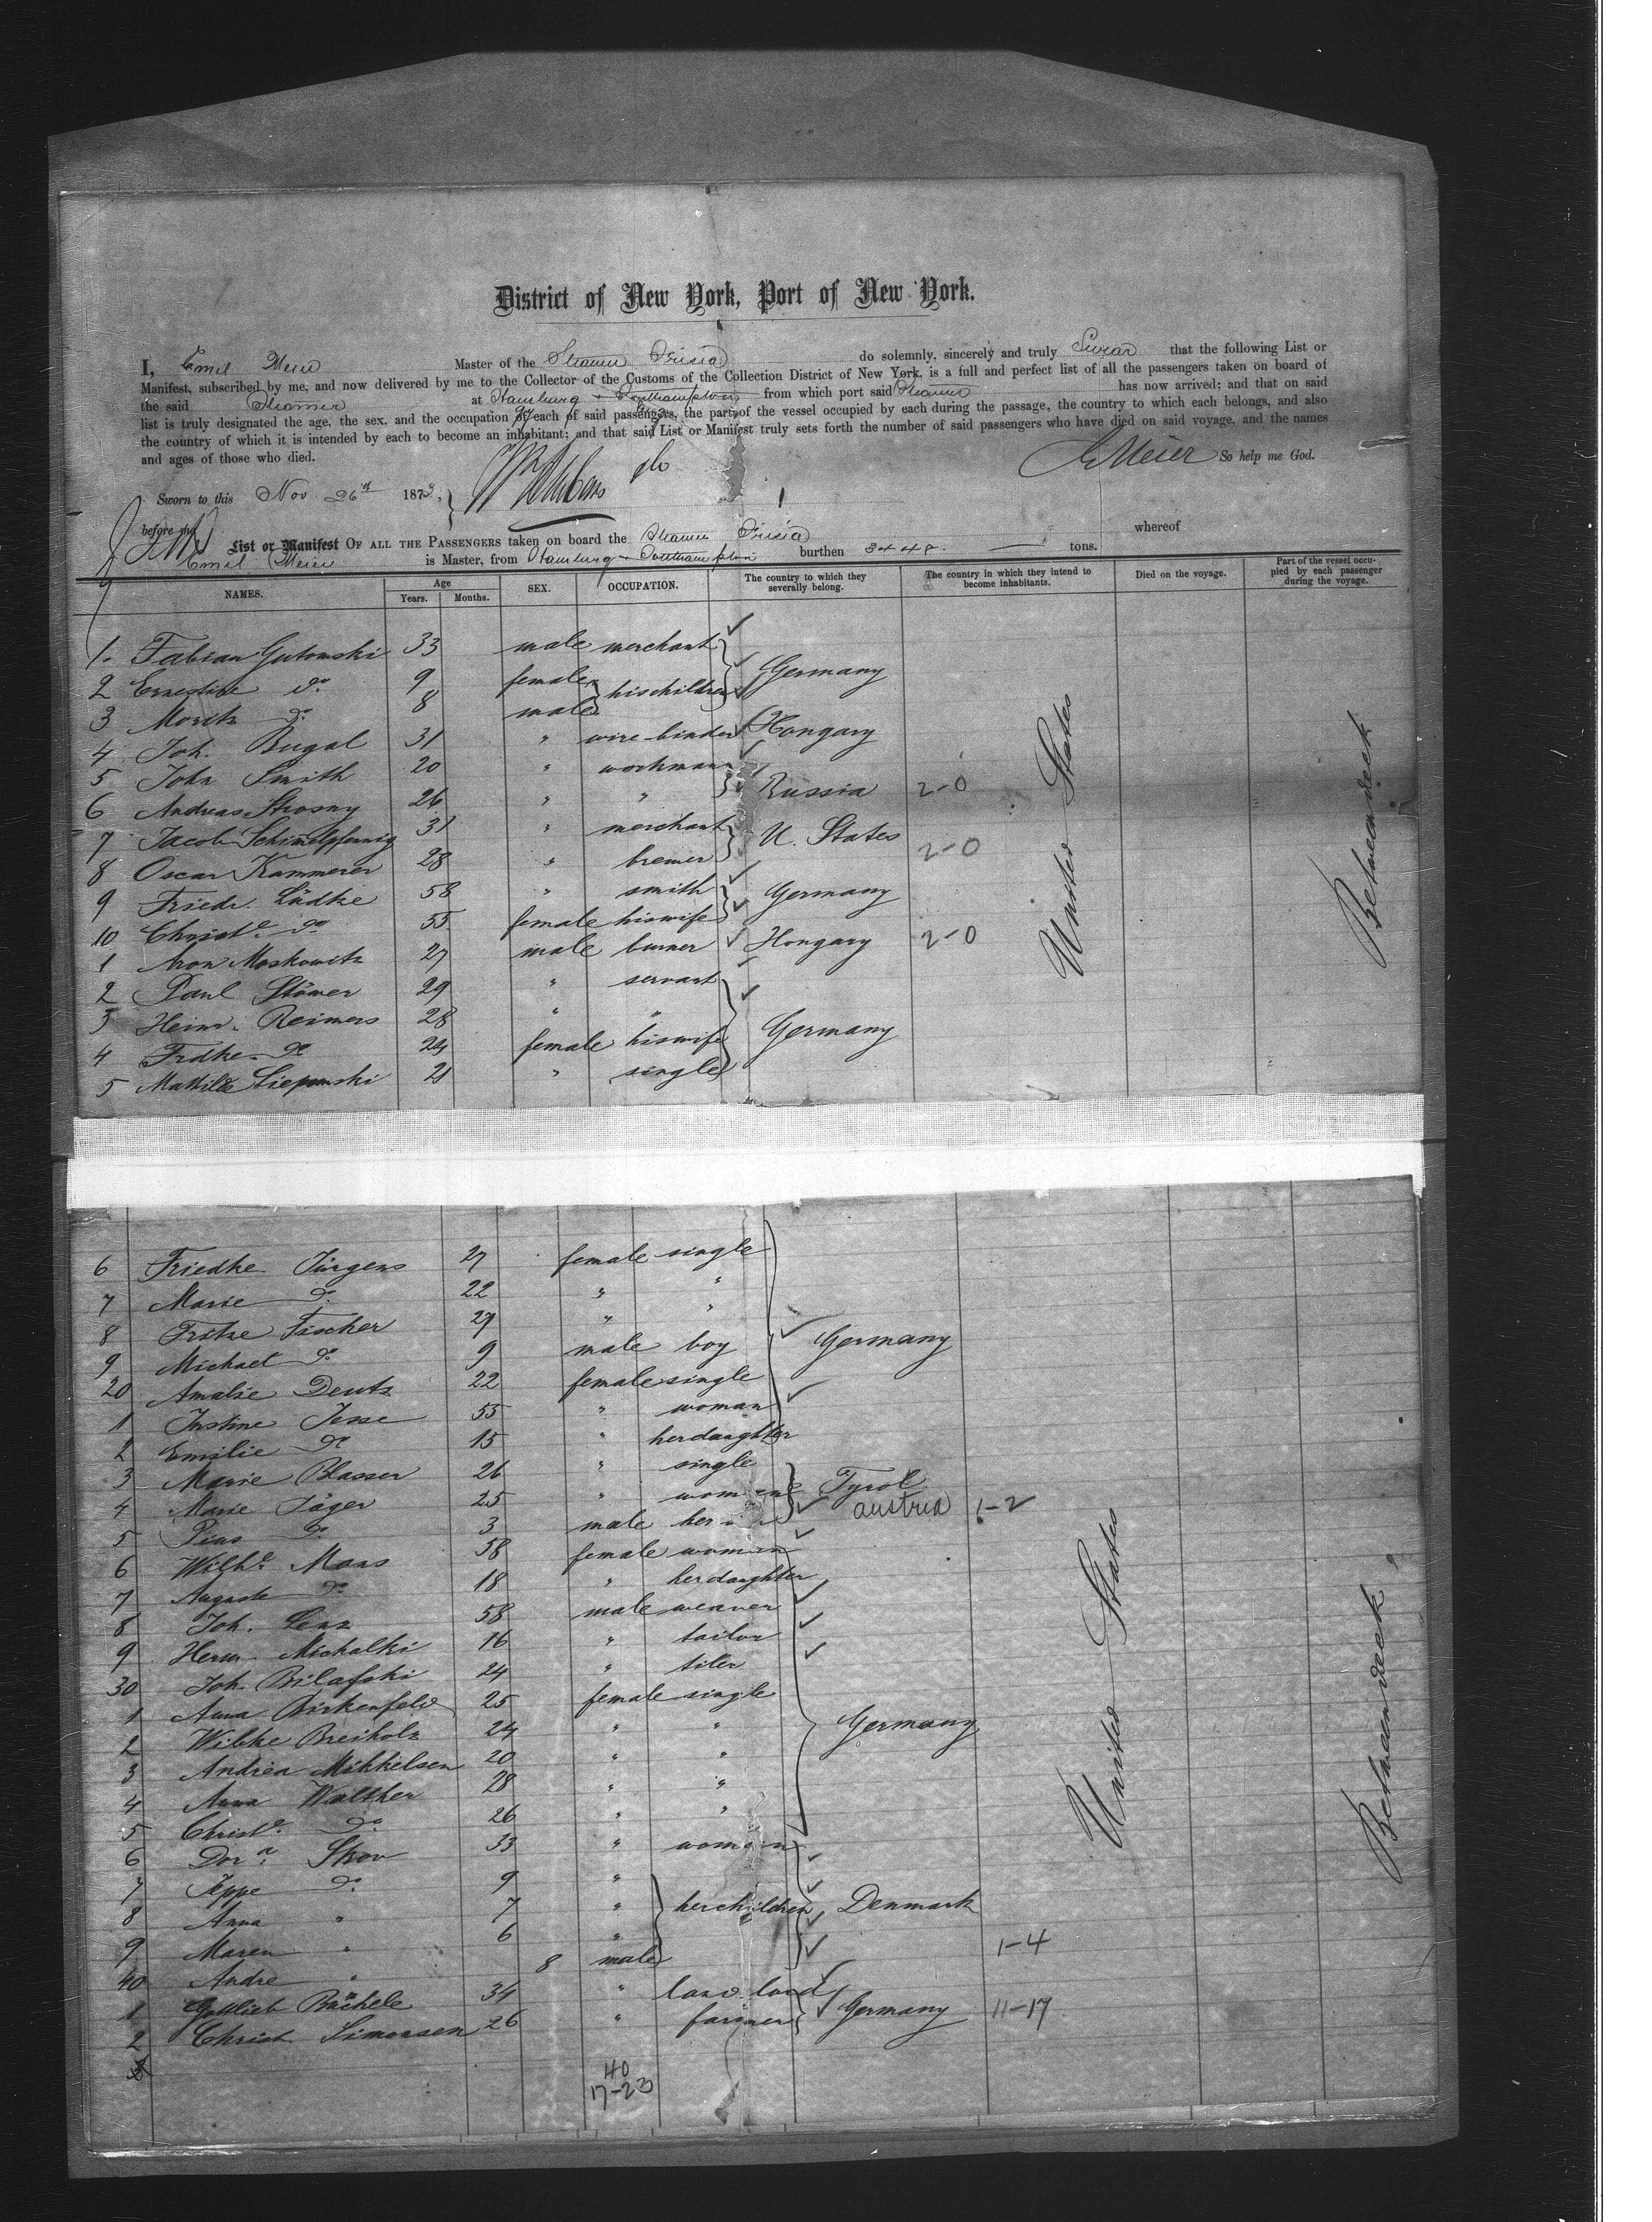 District of New York, Port of New York.
I, Emil Meier Master of the Steamer Frisia do solemnly, sincerely and truly Swear that the following List or
Manifest, subscribed by me, and now delivered by me to the Collector of the Customs of the Collection District of New York, is a full and perfect list of all the passengers taken on board of
the said Steamer at Hamburg & Southampton from which port said Steamer has now arrived; and that on said
list is truly designated the age, the sex, and the occupation of each of said passengers, the part of the vessel occupied by each during the passage, the country to which each belongs, and also
the country of which it is intended by each to become an inhabitant; and that said List or Manifest truly sets forth the number of said passengers who have died on said voyage, and the names
and ages of those who died.
E Meier So help me God.
Sworn to this Nov 26th 1873,
before me
List or Manifest OF ALL THE PASSENGERS taken on board the Steamer Frisia whereof
Emil Meier is Master, from Hamburg & Southampton burthen 3448 tons.
NAMES. Age Years. Months. SEX. OCCUPATION. The country to which they severally belong. The country in which they intend to become inhabitants. Died on the voyage. Part of the vessel occupied by each passenger during the voyage.
1. Fabian Gutowski 33 male merchant
2 Ernestine do 9 female his children Germany
3 Moritz do 8 male
4 Joh. Bugal 31 " wire-binder Hongary
5 John Smith 20 " workman
6 Andreas Strosny 26 " " Russia 2-0
7 Jacob Schimelpfennig 31 " merchant U. States
8 Oscar Kammerer 28 " brewer 2-0
9 Friedr. Lüdke 58 " smith Germany
10 Christe do 55 female his wife
1 Aron Moskowitz 27 male burner Hongary 2-0
2 Paul Stömer 29 " servant
3 Heinr. Reimers 28 " "
4 Frdke do 24 female his wife Germany
5 Mathilde Liepinski 21 " single
United States
Betweendeck
6 Friedke Jürgens 27 female single
7 Marie do 22 " "
8 Fritze Fischer 27 " "
9 Michael do 9 male boy Germany
20 Amalie Deutz 22 female single
1 Justine Jesse 55 " woman
2 Emilie do 15 " her daughter
3 Marie Blasser 26 " single
4 Marie Jäger 25 " woman Tyrol
5 Pius do 3 male her austria 1-2
6 Wilhe. Maas 58 female woman
7 Auguste do 18 " her daughter
8 Joh. Lenz 58 male weaver
9 Herm. Michalki 16 " tailor
30 Joh. Bilafski 24 " tiler
1 Anna Birkenfeld 25 female single
2 Wibke Breiholz 24 " " Germany
3 Andrea Mikkelsen 20 " "
4 Anna Walther 28 " "
5 Christe. do 26 " "
6 Dora Skov 33 " woman
7 Jeppe do 9 "
8 Anna " 7 " her children Denmark
9 Maren " 6 "
40 Andre " 8 male 1-4
1 Gottlieb Bächele 34 " land-lord
2 Christ Simonsen 26 " farmer Germany 11-17
United States
Betweendeck
40
17-23